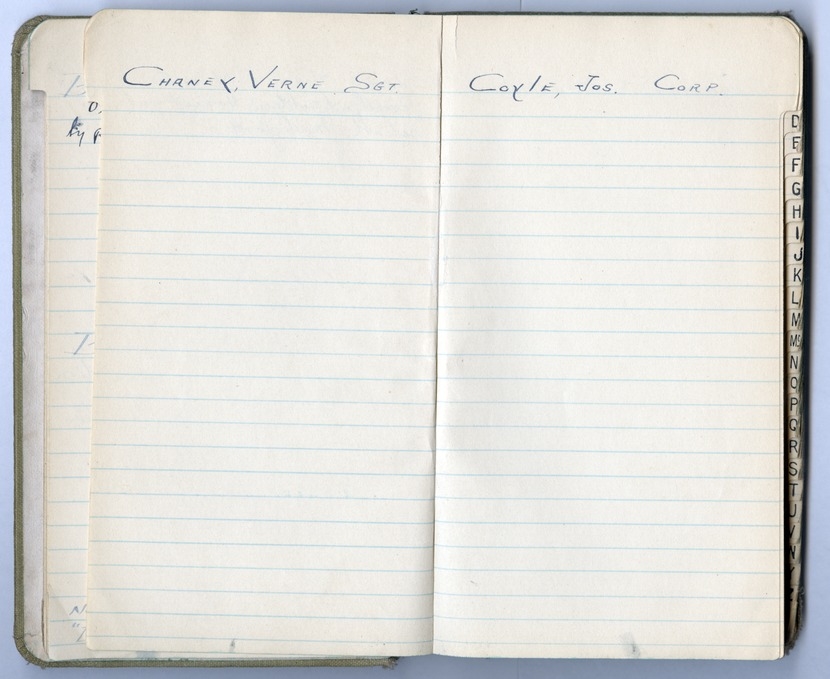 CHANEY, VERNE SGT.
COYLE, JOS. CORP.
by
D
E
F
G
H
I
J
K
L
M
Mc
N
O
P
Q
R
S
T
U
V
W
Y
Z